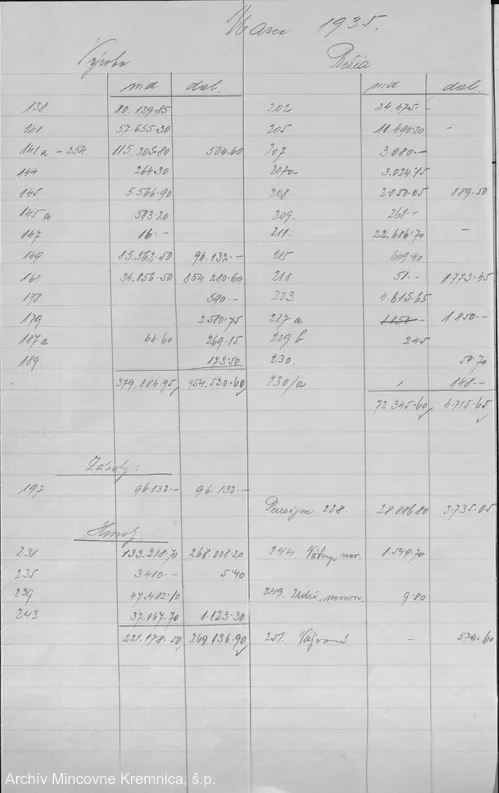 Marec 1935.
Výroba
Réžia
md dal. md dal.
138 80.129.85 202 24.475 –
141 57.655.30 205 11.490.20 –
141 a – 254 115.205.80 504.60 207 3.080 –
144 264.30 207a 3.024.15
145 5.566.90 208 2.050.05 889.50
145 a 583.20 209. 268. –
147 16. – 211. 22.686.70 –
149 85.362.50 96.132. – 215 609.40
161 34.856.50 854.280.60 218 51. – 1.773.45
178 590. – 223 4.815.65
179 2.580.75 227 a 1.850. –
187 a 44.60 269.15 229 b 245
189. 173.50 230. 50.70
379.884.95 954.530.60 230/a 148. –
72.345.60 4.715.65
197 96.132. – 96.132. –
228. 28.886.80 3.735.05
Hmoty:
231 133.218.70 268.008.20 244. 1.549.70
235 3410. – 5.40
239 47.482.10 249. 9.80
243 37.067.70 1.123.30
221.178.50 269.136.90 251. – 574.60
Archív Mincovne Kremnica, š.p.